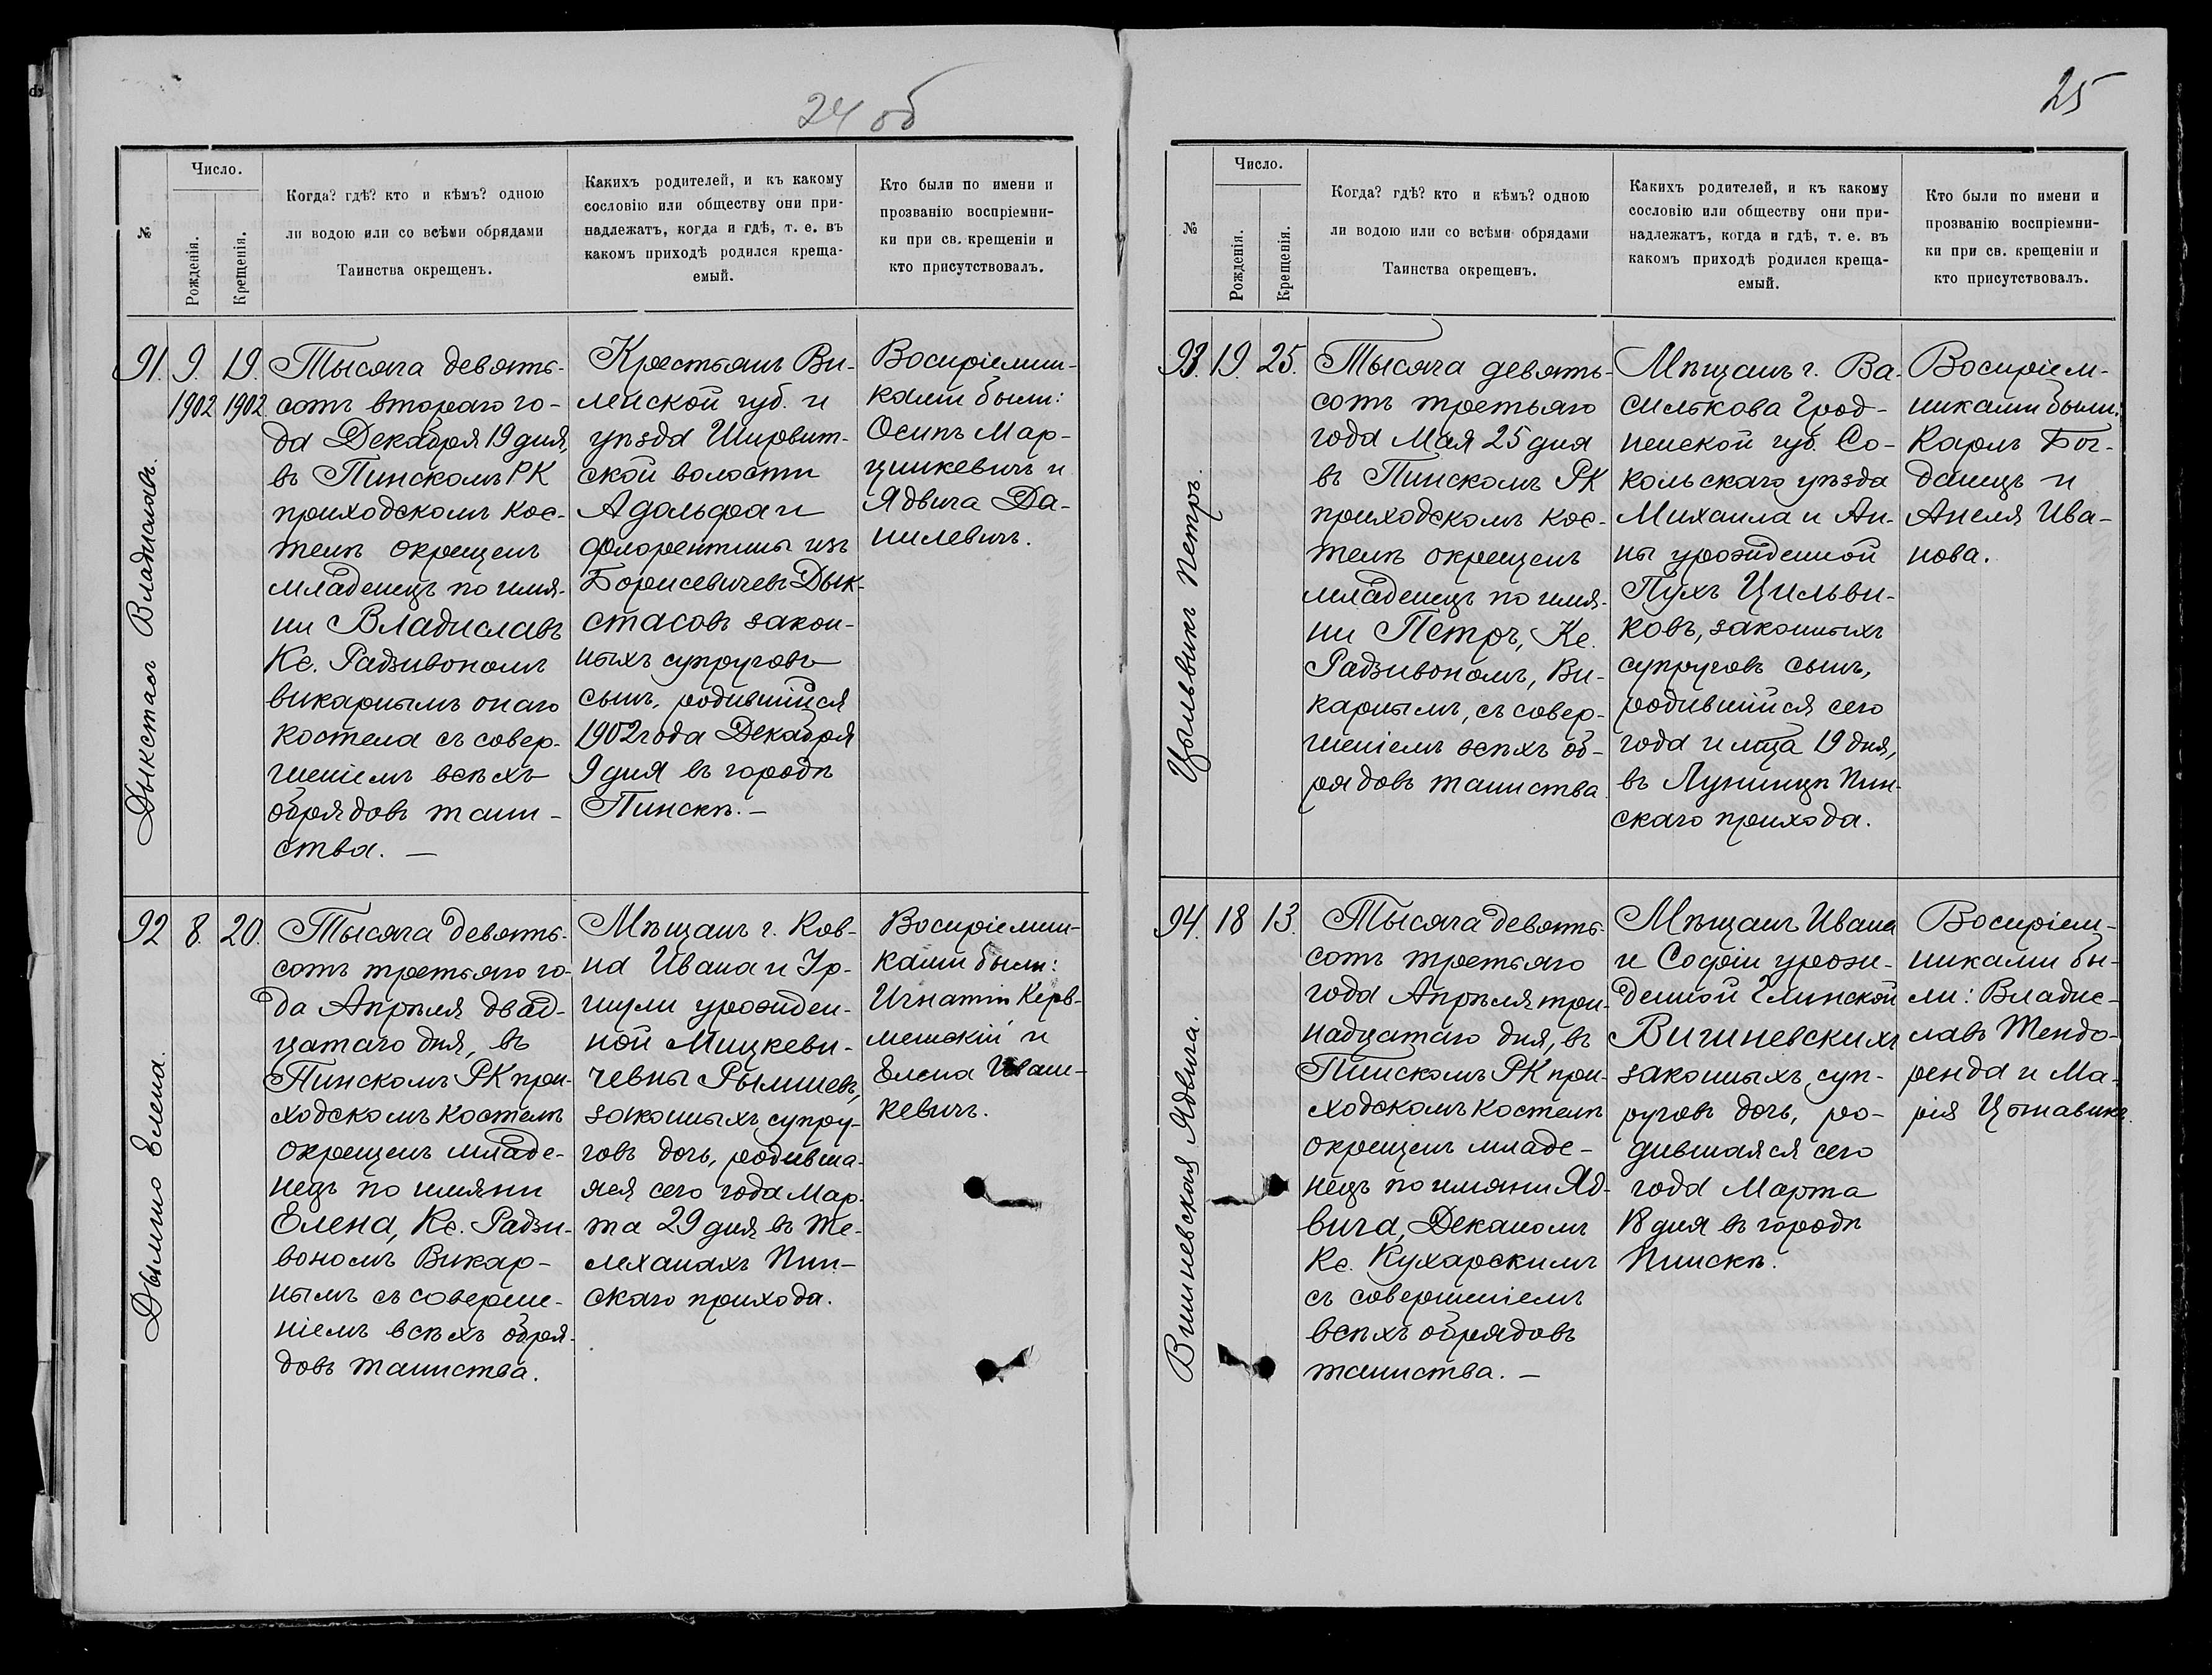 24 об
№
Число.
Рожденія.
Крещенія.
Когда? гдѣ? кто и кѣмъ? одною
ли водою или со всѣми обрядами
Таинства окрещенъ.
Какихъ родителей, и къ какому
сословію или обществу они при-
надлежатъ, когда и гдѣ, т. е. въ
какомъ приходѣ родился креща-
емый.
Кто были по имени и
прозванію воспріемни-
ки при св. крещеніи и
кто присутствовалъ.
Дыкстасъ Владиславъ.
91.
9.
1902
19.
1902
Тысяча девять-
сотъ второго го-
да Декабря 19 дня,
въ Пинскомъ РК
приходскомъ кос-
телѣ окрещенъ
младенецъ по имя-
ни Владиславъ
Кс. Радзивономъ
викарнымъ онаго
костела съ совер-
шеніемъ всѣхъ
обрядовъ таин-
ства. —
Крестьянъ Ви-
ленской губ. и
уѣзда Ширвит-
ской волости
Адольфа и
Флорентины изъ
Борисевичевъ Дык-
стасовъ закон-
ныхъ супруговъ
сынъ, родившійся
1902 года Декабря
9 дня въ городѣ
Пинскѣ. —
Воспріемни-
ками были:
Осипъ Мар-
цинкевичъ и
Ядвига Да-
нилевичъ.
Елена
92
8.
20.
Тысяча девять-
сотъ третьяго го-
да Апрѣля двад-
цатаго дня, въ
Пинскомъ РК при-
ходскомъ костелѣ
окрещенъ младе-
нецъ по имяни
Елена, Кс. Радзи-
вономъ Викар-
нымъ съ соверше-
ніемъ всѣхъ обря-
довъ таинства.
Мѣщанъ г. Ков-
на Ивана и Ур-
шули урожден-
ной Мицкеви-
чевны
законныхъ супру-
говъ дочь, родивша-
яся сего года Мар-
та 29 дня въ Те-
леханахъ Пин-
скаго прихода.
Воспріемни-
ками были:
Игнатій
и
Елена Иваш-
кевичъ.
25
№
Число.
Рожденія.
Крещенія.
Когда? гдѣ? кто и кѣмъ? одною
ли водою или со всѣми обрядами
Таинства окрещенъ.
Какихъ родителей, и къ какому
сословію или обществу они при-
надлежатъ, когда и гдѣ, т. е. въ
какомъ приходѣ родился креща-
емый.
Кто были по имени и
прозванію воспріемни-
ки при св. крещеніи и
кто присутствовалъ.
Цыльвикъ Петръ.
93.
19.
25.
Тысяча девять-
сотъ третьяго
года Мая 25 дня
въ Пинскомъ РК
приходскомъ кос-
телѣ окрещенъ
младенецъ по имя-
ни Петръ, Кс.
Радзивономъ, Ви-
карнымъ, съ совер-
шеніемъ всѣхъ об-
рядовъ таинства.
Мѣщанъ г. Ва-
силькова Грод-
ненской губ. Со-
кольскаго уѣзда
Михаила и Ан-
ны урожденной
Пухъ Цильви-
ковъ, законныхъ
супруговъ сынъ,
родившійся сего
года и мца 19 дня,
въ Лунинцѣ Пин-
скаго прихода.
Воспріем-
никами были:
Карлъ Бог-
данецъ и
Анеля Ива-
нова.
Вишневская Ядвига.
94.
18
13.
Тысяча девять-
сотъ третьяго
года Апрѣля три-
надцатаго дня, въ
Пинскомъ РК при-
ходскомъ костелѣ
окрещенъ младе-
нецъ по имяни Яд-
вига, Деканомъ
Кс. Кухарскимъ
съ совершеніемъ
всѣхъ обрядовъ
таинства. —
Мѣщанъ Ивана
и Софіи урож-
денной Глинской
Вишневскихъ
законныхъ суп-
руговъ дочь, ро-
дившаяся сего
года Марта
18 дня въ городѣ
Пинскѣ.
Воспріем-
никами бы-
ли: Владис-
лавъ Тендо-
ренда и Ма-
рія